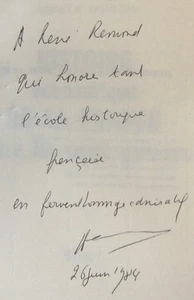 A René Rémond
qui honore tant
l'école historique
française
en fervent hommage admiratif
26 juin 1984